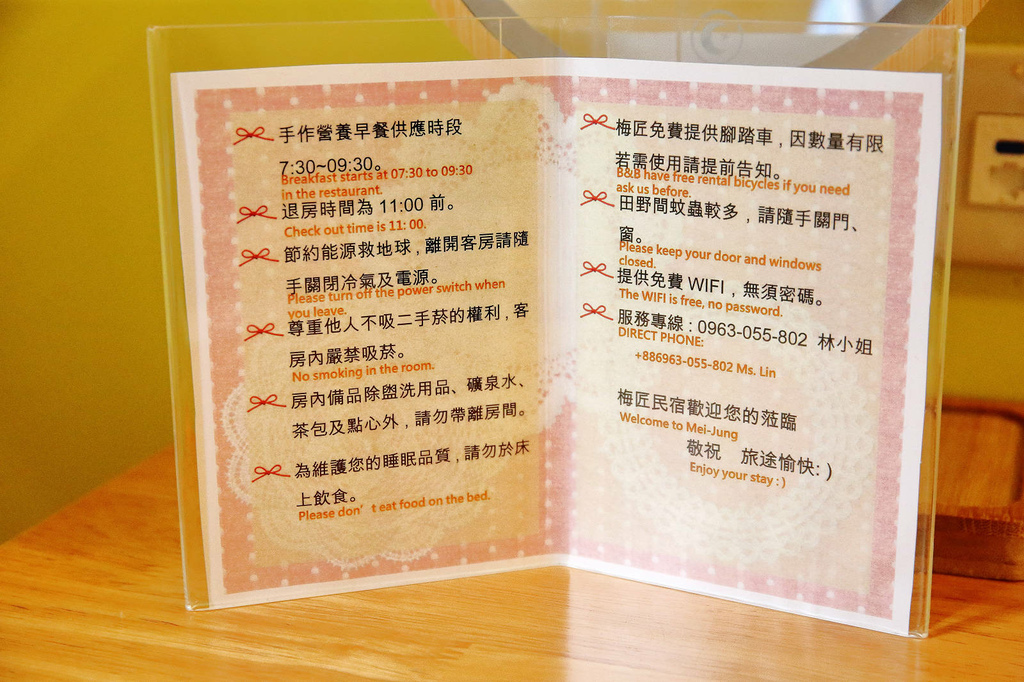 手作營養早餐供應時段
7:30~09:30。
Breakfast starts at 07:30 to 09:30
in the restaurant.
退房時間為 11:00 前。
Check out time is 11: 00.
節約能源救地球，離開客房請隨
手關閉冷氣及電源。
Please turn off the power switch when
you leave.
尊重他人不吸二手菸的權利，客
房內嚴禁吸菸。
No smoking in the room.
房內備品除盥洗用品、礦泉水、
茶包及點心外，請勿帶離房間。
為維護您的睡眠品質，請勿於床
上飲食。
Please don't eat food on the bed.
梅匠免費提供腳踏車，因數量有限
若需使用請提前告知。
B&B have free rental bicycles if you need
ask us before.
田野間蚊蟲較多，請隨手關門、
窗。
Please keep your door and windows
closed.
提供免費 WIFI，無須密碼。
The WIFI is free, no password.
服務專線：0963-055-802 林小姐
DIRECT PHONE:
+886963-055-802 Ms. Lin
梅匠民宿歡迎您的蒞臨
Welcome to Mei-Jung
敬祝 旅途愉快: )
Enjoy your stay : )